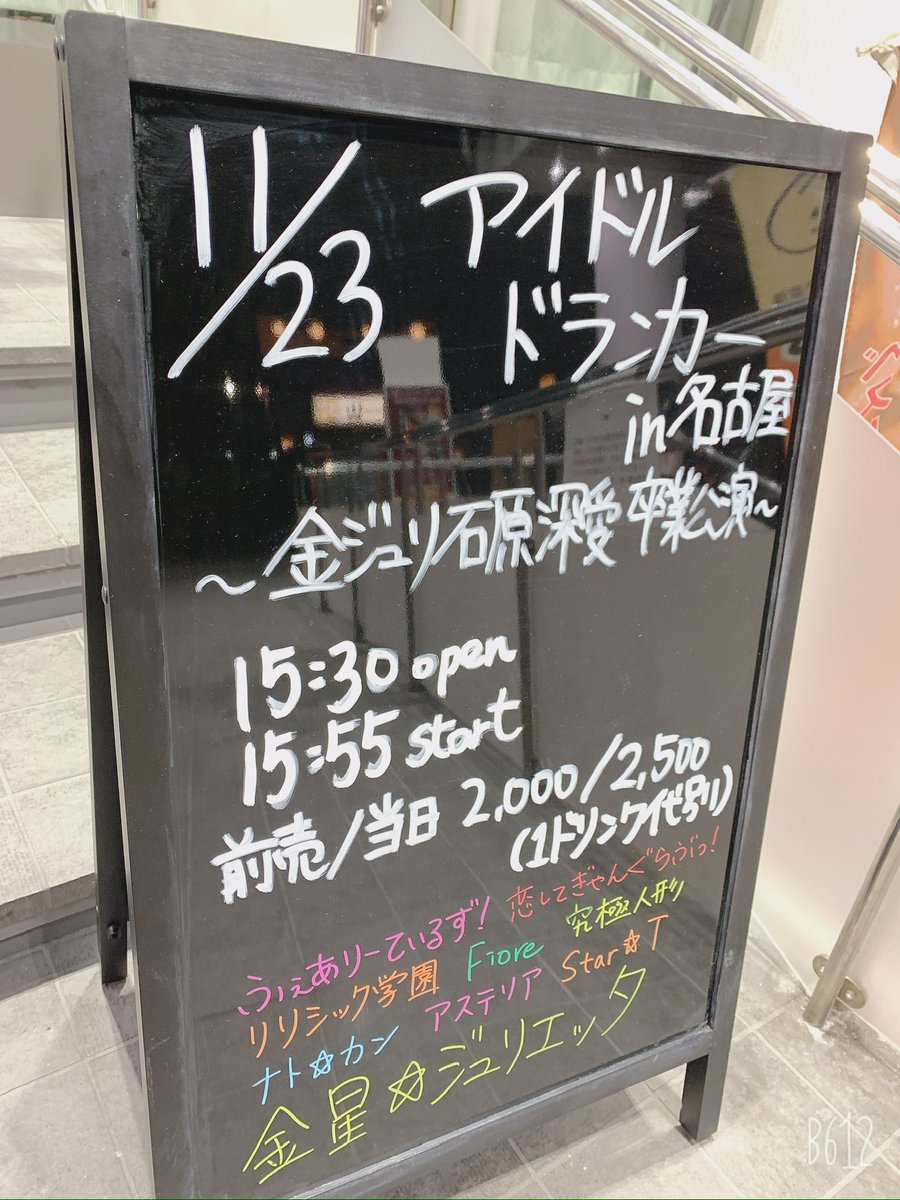 11/23 アイドル
ドランカー
in名古屋
～金ジュリ石原深愛 卒業公演～
15:30 open
15:55 start
前売/当日 2,000/2,500
(1ドリンク代別)
ふぇありーているず! 恋してぎゃんぐらぶっ!
リリシック学園 Fiore 究極人形
ナト☆カン アステリア Star☆T
金星☆ジュリエッタ
B612